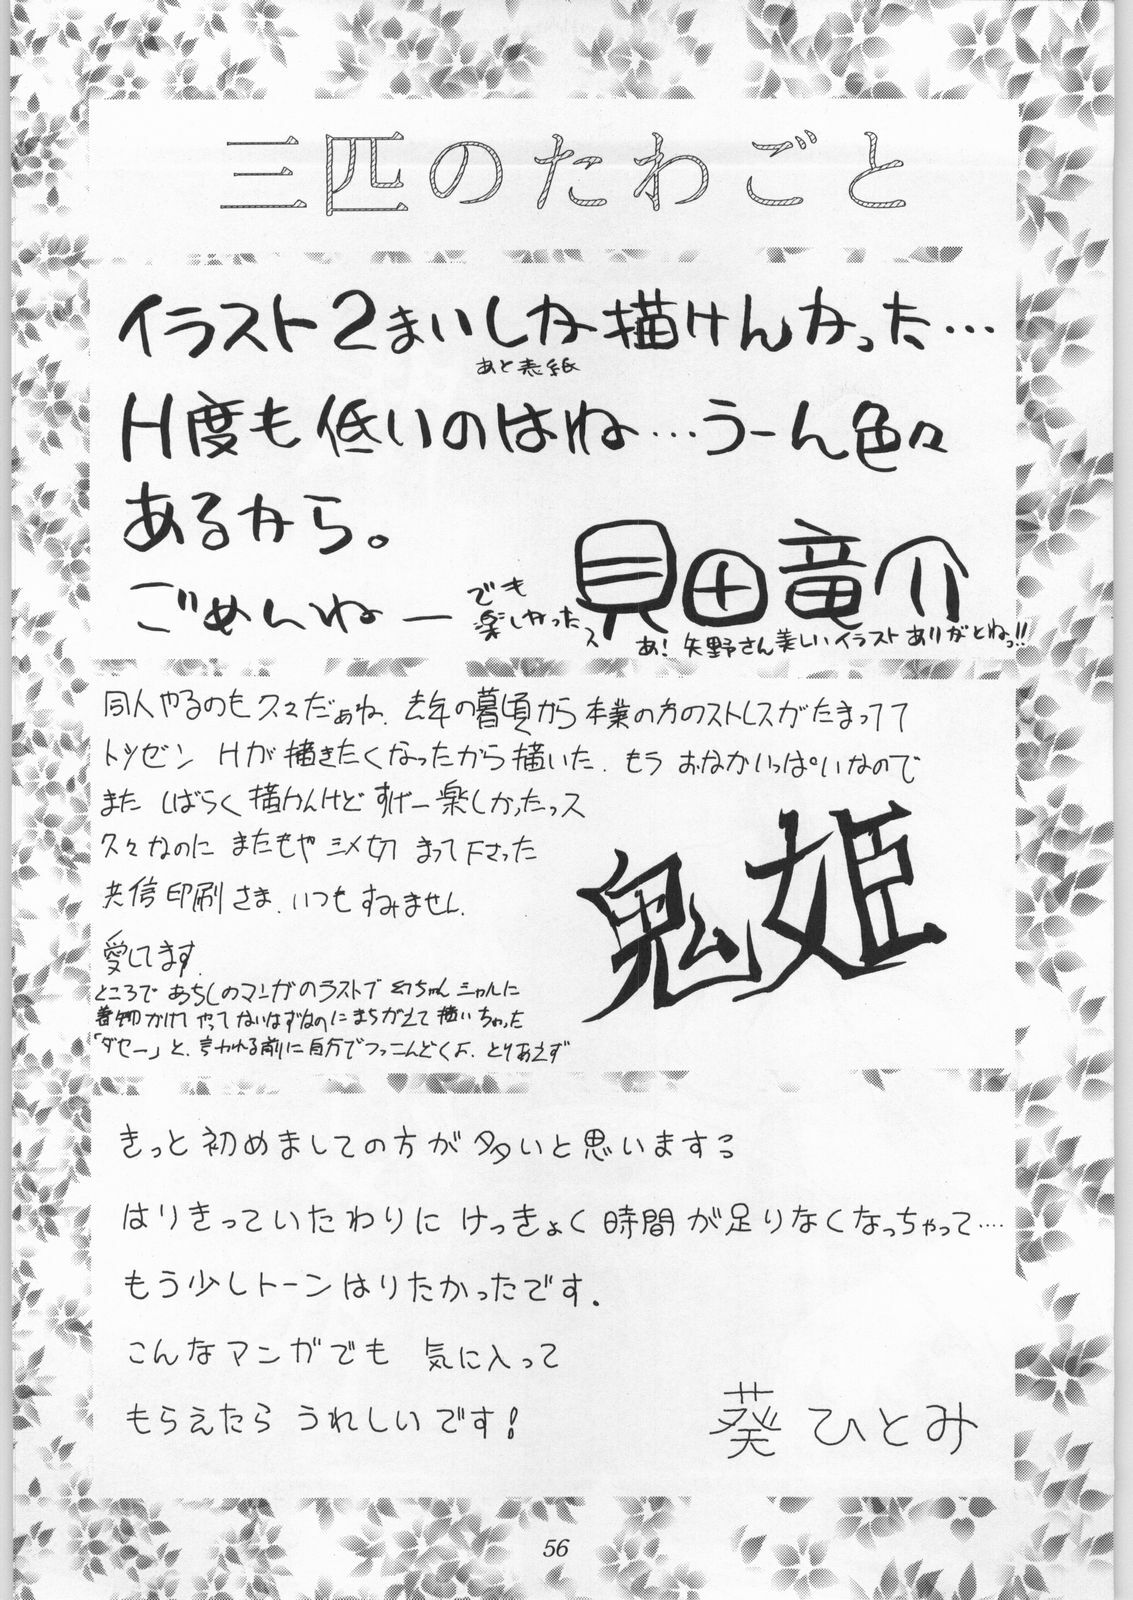 三匹のたわごと
イラスト2まいしか描けんかった…
あと表紙
H度も低いのはね…うーん色々
あるから。
ごめんねー
でも
楽しかったス
貝田竜介
あ!矢野さん美しいイラストありがとねっ!!
同人やるのも久々だぁね.去年の暮頃から本業の方のストレスがたまってて
トツゼン Hが描きたくなったから描いた.もう おなかいっぱいなので
また しばらく描けんけど すげー楽しかったっス
久々なのに またもや〆切 まって下さった
共信印刷さま.いつもすみません.
愛してます.
ところで あちしのマンガのラストで 幻ちゃん ミャルに
着物かけてやってないはずなのに まちがえて描いちゃった
「ダセー」と.言われる前に自分でつっこんどくよ.とりあえず
鬼姫
きっと初めましての方が多いと思います。
はりきっていたわりに けっきょく時間が足りなくなっちゃって....
もう少しトーンはりたかったです.
こんなマンガでも 気に入って
もらえたら うれしいです!
葵ひとみ
56